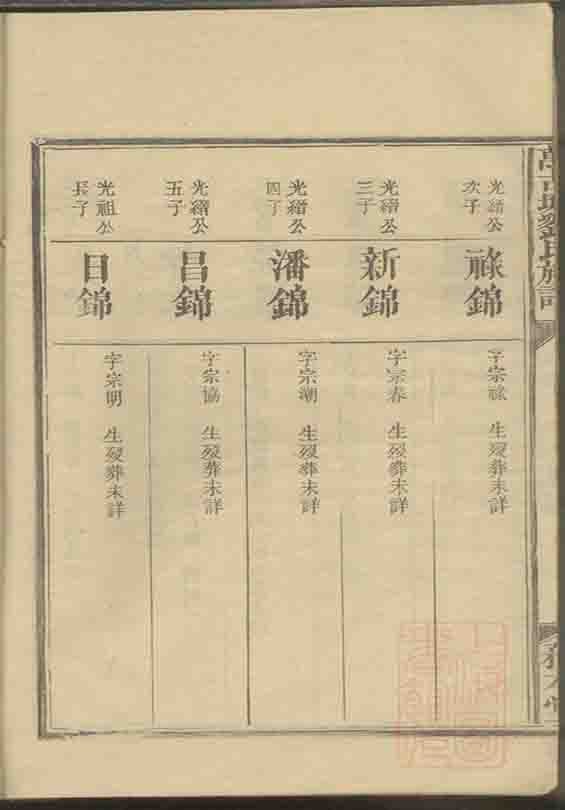 氏族譜
光縉公
次子
祿錦
字宗祿 生歿葬未詳
光縉公
三子
新錦
字宗春 生歿葬未詳
光縉公
四子
潘錦
字宗潮 生歿葬未詳
光縉公
五子
昌錦
字宗協 生歿葬未詳
光祖公
長子
目錦
字宗明 生歿葬未詳